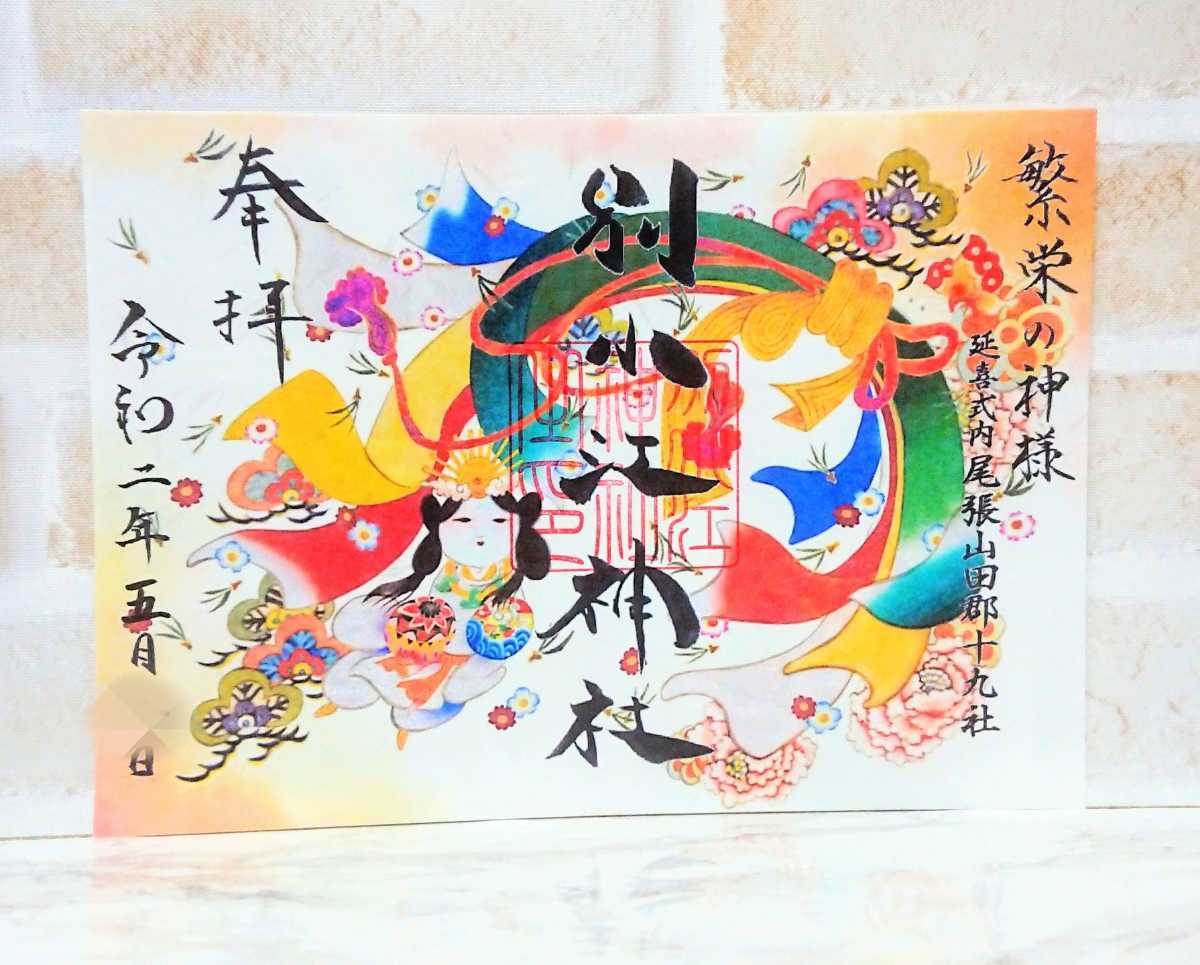 繁栄の神様
延喜式内尾張山田郡十九社
別小江神社
奉拝
令和二年五月 日